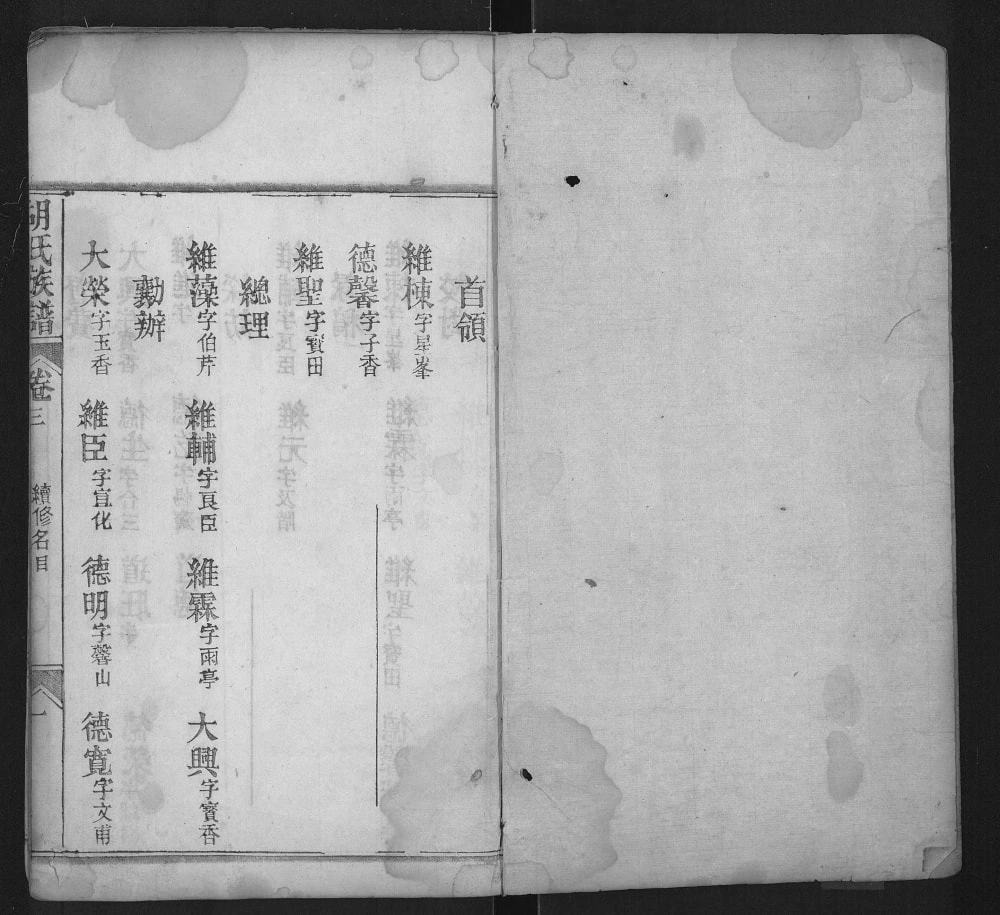 首領
維棟字星峯
德馨字子香
維聖字寳田
總理
維藻字伯芹 維輔字良臣 維霖字雨亭 大興字寳香
勷辦
大榮字玉香 維臣字宜化 德明字馨山 德寛字文甫
胡氏族譜 卷三 續修名目 一